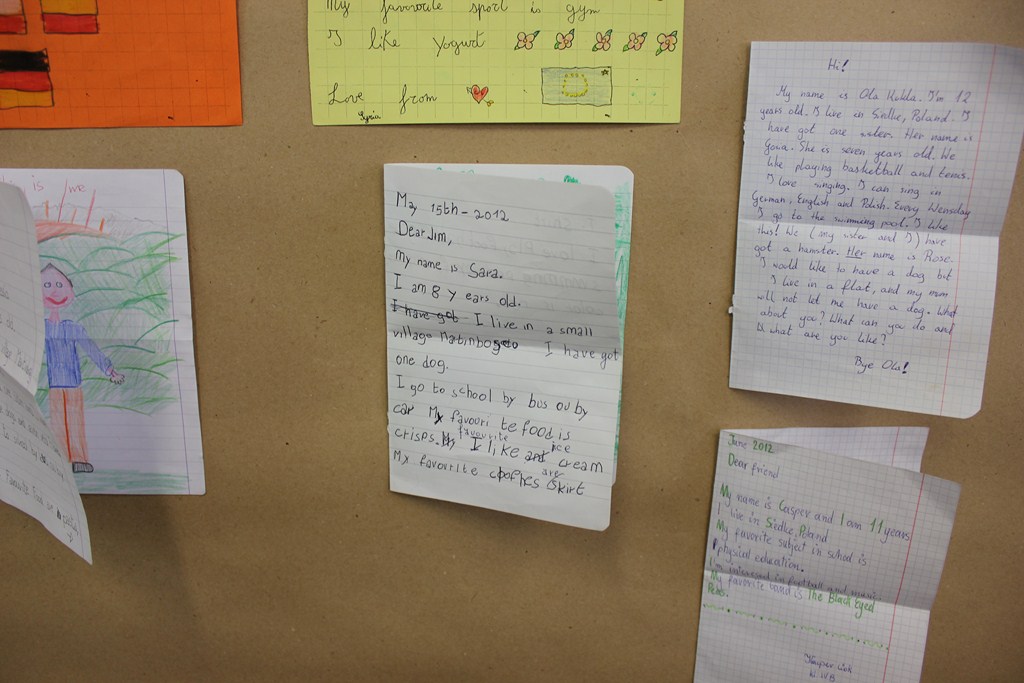 My favourite sport is gym
I like yogurt
Love from
is me
May 15th-2012
Dear Jim,
My name is Sara.
I am 8 years old.
I have got I live in a small
village I have got
one dog.
I go to school by bus or by
car My favourite food is
crisps. favourite I like ice cream
My favourite clothes are skirt
Hi!
My name is Ola I'm 12
years old. I live in Siedlce, Poland. I
have got one sister. Her name is
She is seven years old. We
like playing basketball and tennis.
I love singing. I can sing in
German, English and Polish. Every Wensday
I go to the swimming pool. I like
this! We (my sister and I) have
got a hamster. Her name is Rose.
I would like to have a dog but
I live in a flat, and my mum
will not let me have a dog. What
about you? What can you do and
what are you like?
Bye Ola!
June 2012
Dear friend
My name is Casper and I am 11 years
I live in Siedlce, Poland
My favorite subject in school is
physical education.
I'm interested in football and music.
My favorite band is The Black Eyed
Peas.